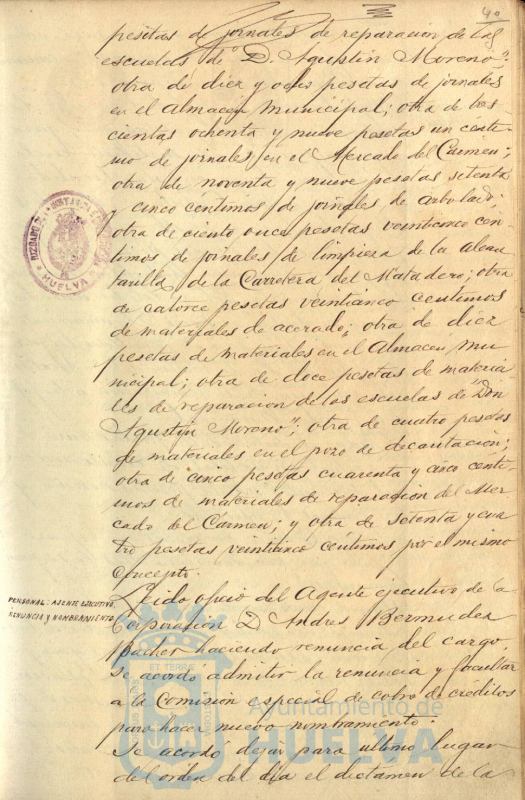 40
pesetas de jornales de reparación de las
escuelas de "D. Agustín Moreno":
otra de diez y ocho pesetas de jornales
en el Almacén Municipal; otra de dos
cientas ochenta y nueve pesetas un cénti
mo de jornales en el Mercado del Carmen;
otra de noventa y nueve pesetas setenta
y cinco centimos de jornales de arbolado;
otra de ciento once pesetas veinticinco cen
timos de jornales de limpieza de la alcan
tarilla de la Carretera del Matadero; otra
de catorce pesetas veinticinco centimos
de materiales de acerado; otra de diez
pesetas de materiales en el Almacen Mu
nicipal; otra de doce pesetas de materia
les de reparación de las escuelas de "Don
Agustín Moreno"; otra de cuatro pesetas
de materiales en el pozo de decantación;
otra de cinco pesetas cuarenta y cinco centi
mos de materiales de reparación del Mer
cado del Cármen; y otra de setenta y cua
tro pesetas veinticinco céntimos por el mismo
concepto.
PERSONAL: AGENTE EJECUTIVO,
RENUNCIA Y NOMBRAMIENTO
Leido oficio del Agente ejecutivo de la
Corporación D. Andres Bermudez
haciendo renuncia del cargo,
se acordó admitir la renuncia y facultar
a la Comisión especial de cobro de créditos
para hacer nuevo nombramiento.
Se acordó dejar para ultimo lugar
del orden del día el dictamen de la
HUELVA
Ayuntamiento de
HUELVA